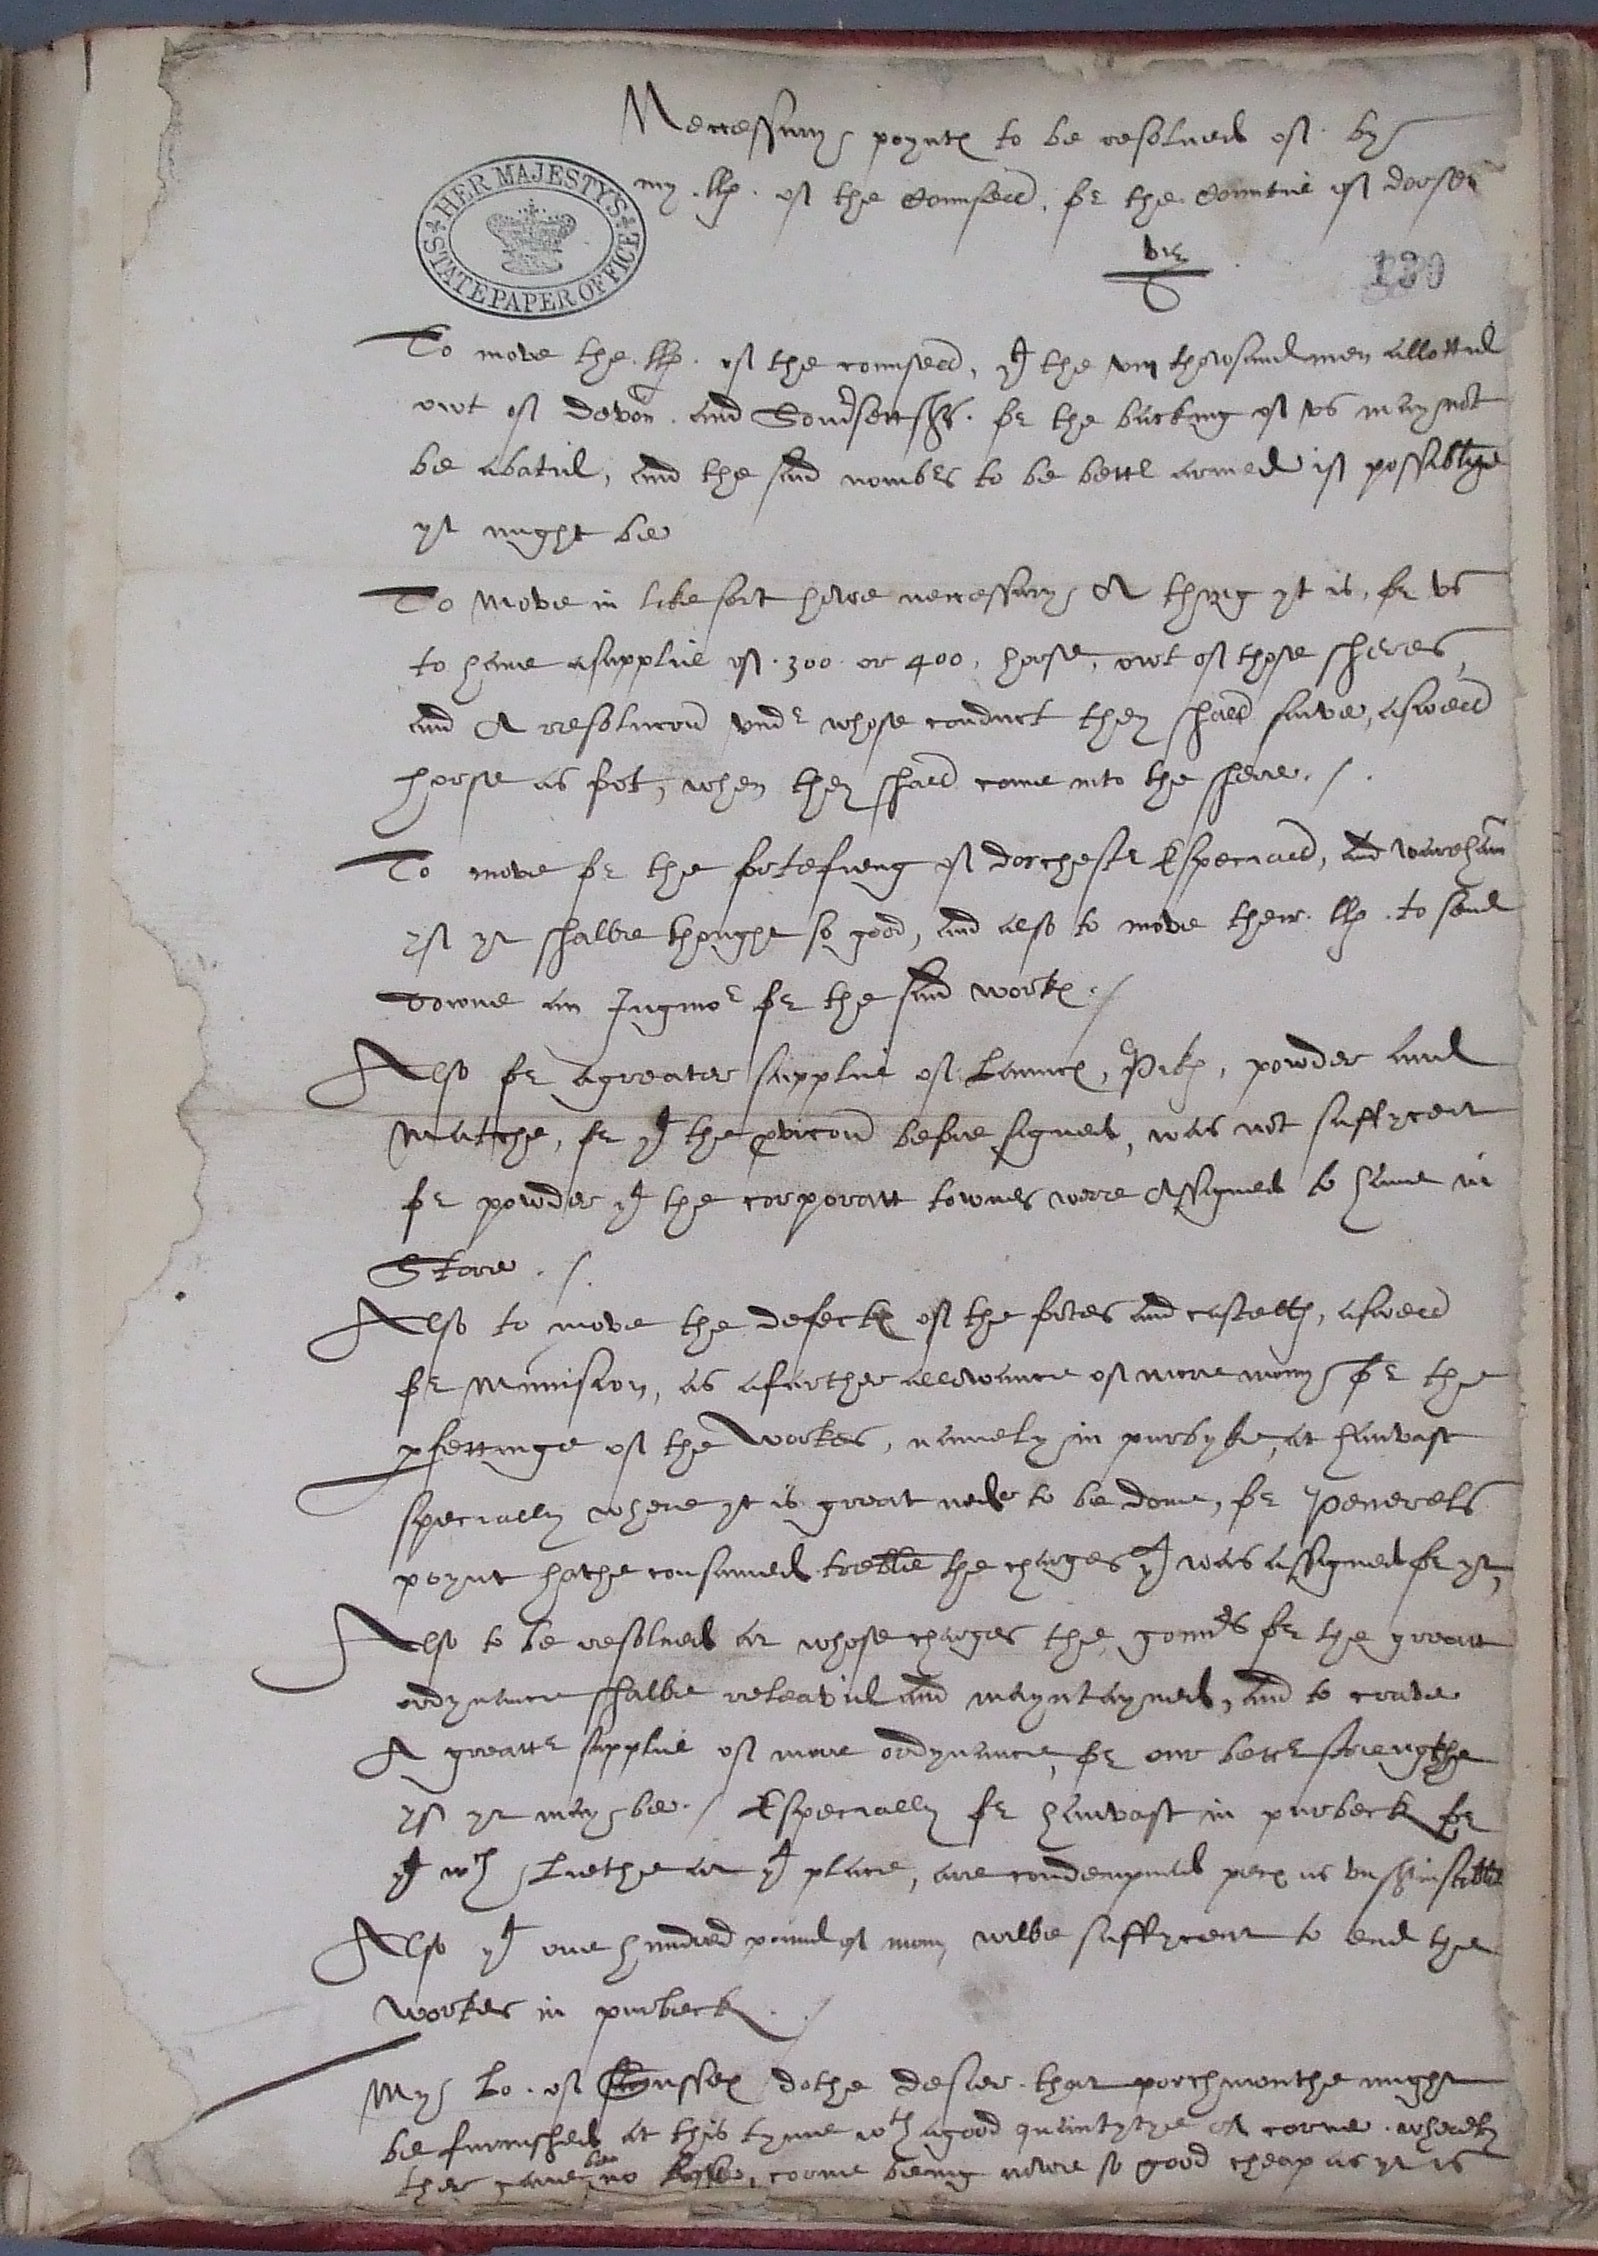 Necessary poynts to be resolved of by
my llp of the Counsell, for the Countie of dorset
viz
HER MAJESTY'S STATE PAPER OFFICE
130
To move the llp of the counsell, yt the viij thowsand men allotted
owt of devon and Somersettsh. for the backing of vs may not
be abated, and the said nombers to be better armed if possiblye
yt might be
To move in like sort howe necessary A thyng yt is, for vs
to have a supplie of 300 or 400 horse, owt of those sheres,
and A resolucon vnder whose conduct they shall serve, aswell
horse as fot, when they shall come into the shere.
To move for the fortefieng of dorchester Especiall, and warham
yf yt shalbe thought so good, and also to move their llp to send
downe an Ingmor for the said works
Also for a greater supplie of Launces, Piks, powder and
Matche, for yt the pvicon before signed, was not suffycent
for powder yt the corporatt townes were Assigned to have in
Store.
Also to move the defects of the fortes and castells, aswell
for Munision, as a further allowance of more mony for the
pfettinge of the workes, namely in purbyke, at hanvast
specially where yt is great nede to be done, for Peverels
poynt hathe consumed treble the charges yt was assigned for yt,
Also to be resolved at whose charges the gonners for the greatt
ordynance shalbe releaved and mayntayned, and to crave
A greatter supplie of more ordynance, for our better strengthe
yf yt may be. Especially for hanvast in purbeck for
yt wch Liethe at yt place, are condempned pecs as vnservisable
Also yt one hundred pound of mony wilbe suffycent to end the
workes in purbeck.
My Lo. of Sussex dothe desier that porchmouthe might
be furnished at this tyme wth a good quantytye of corne wherby
ther cane be no losse, corne being nowe so good cheap as yt is